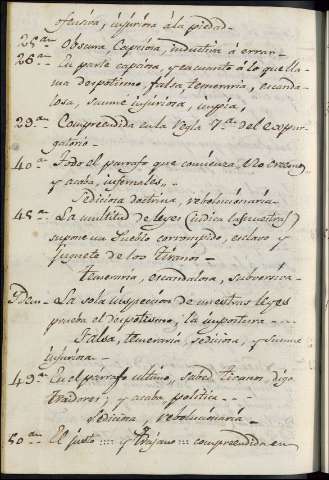 ofensiva, injuriosa á la piedad-
25ª Obscura, Capciosa, inductiva á error-
26ª En parte capciosa, y en cuanto á lo que lla-
ma despotismo, falsa, temeraria, escanda-
losa, sume injuriosa, impía,
29ª Comprendida en la Regla 7ª del expur-
gatorio-
40ª Todo el parrafo que comienza,
y acaba, infernales,,-
Sediciosa doctrina, rebolucionaria-
48ª La multitud de leyes (indica las nuestras)
supone un Pueblo corrompido, esclavo y
juguete de los tiranos-
temeraria, escandalosa, subversiva-
Idem- La sola inspeccion de nuestras leyes
prueba el despotismo, la impostura - - -
falsa, temeraria, sediciosa, y sume
injuriosa-
49ª En el párrafo ultimo,, sabed tiranos, digo
traidores; y acaba, politica - - -
Sediciosa, rebolucionaria-
50ª El justo :::: y trajano :::: comprendida en